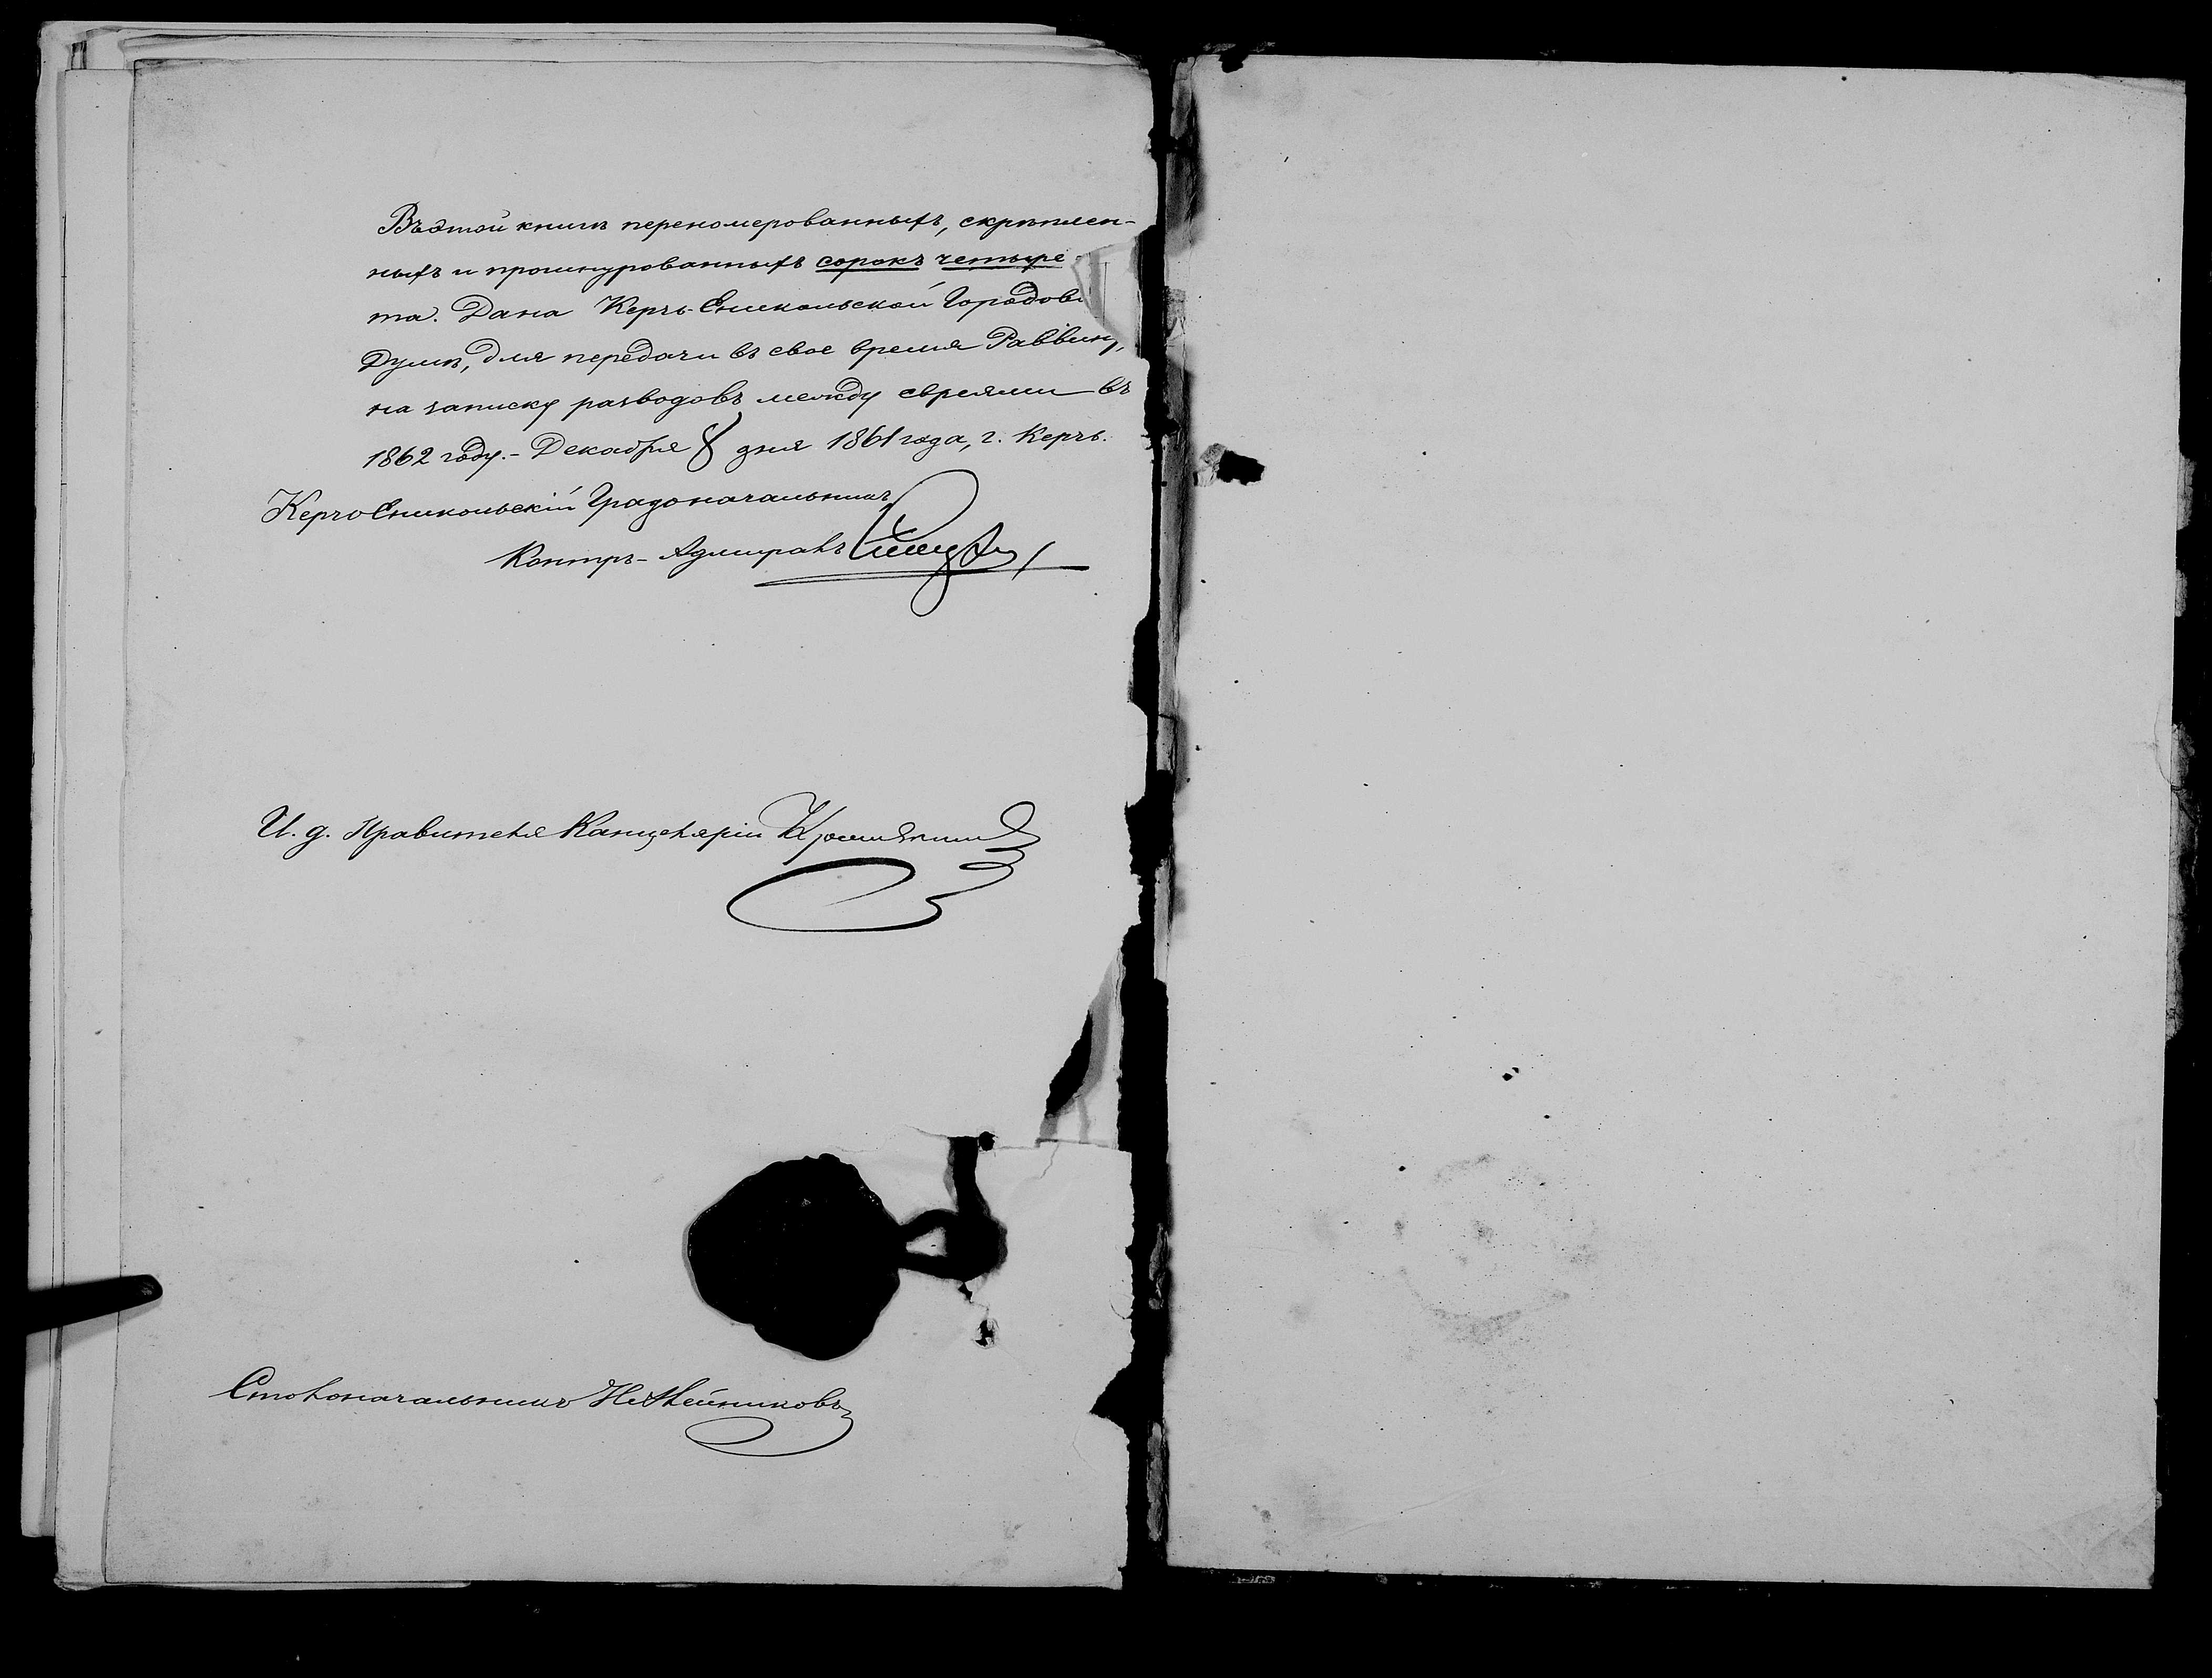 Въ этой книгѣ переномерованныхъ, скрѣплен-
ныхъ и прошнурованныхъ сорокъ четыре
та. Дана Керчь-Еникольской Городов
Думѣ, для передачи въ свое время Раввину,
на записку разводовъ между евреями въ
1862 году.- Декабря 8 дня 1861 года, г. Керчь.
Керчь Еникольскій Градоначальникъ
Контръ-Адмиралъ
И. д. Правителя Канцеляріи
Столоначальникъ